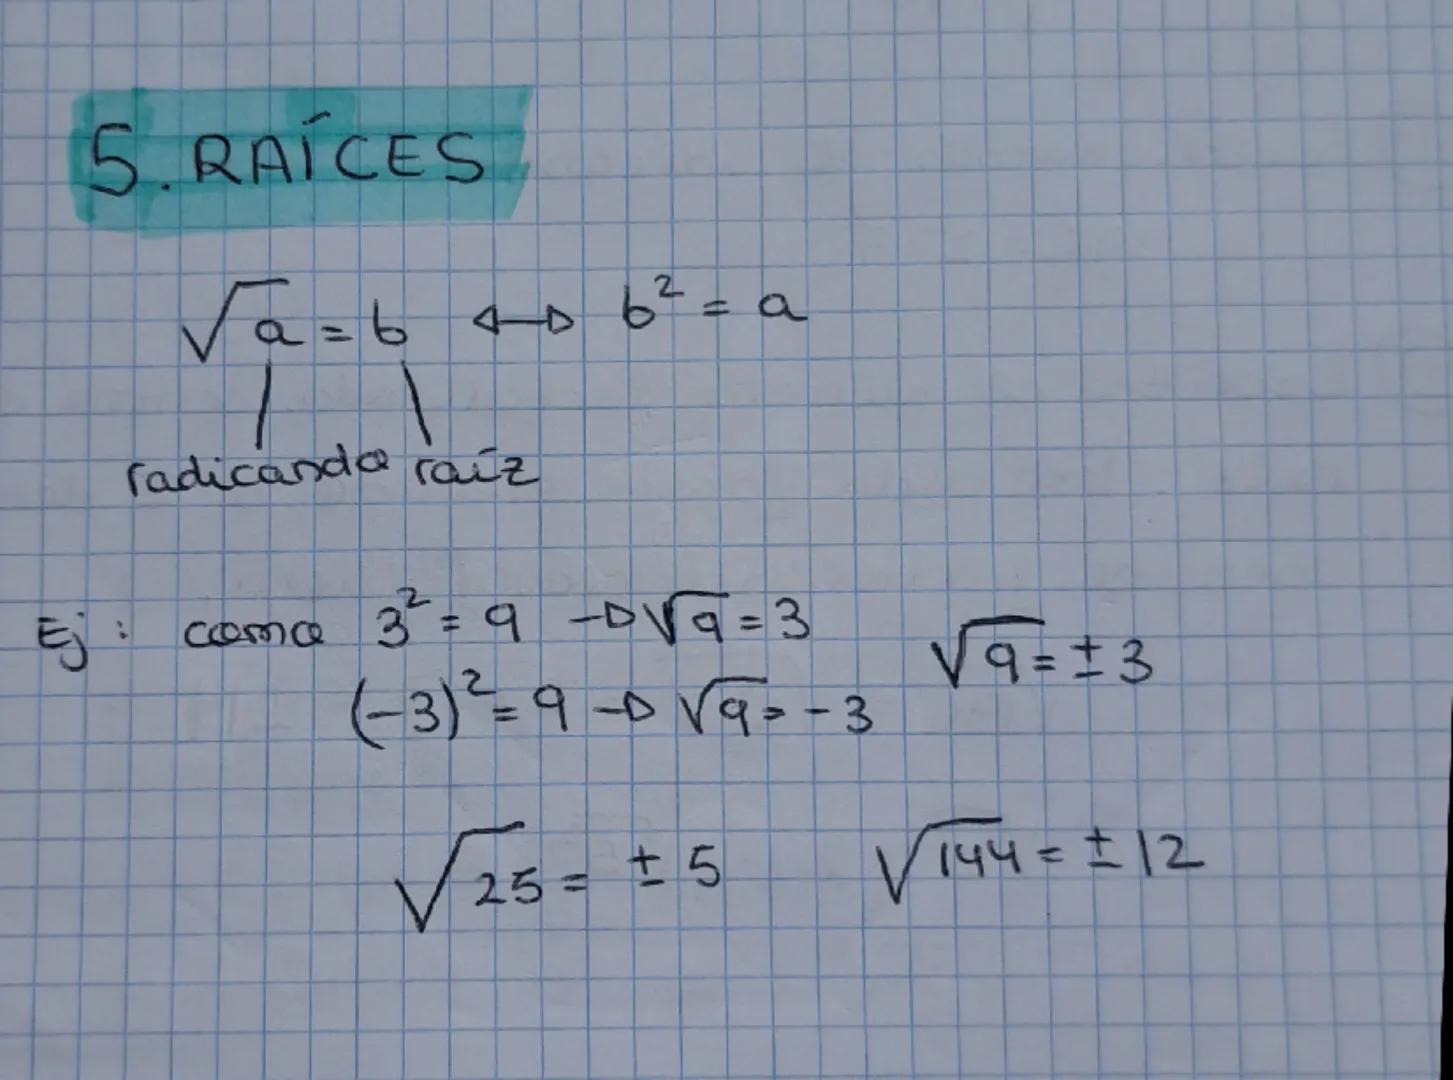 5. RAÍCES
√a = b ↔ b² = a
radicando raíz
Ej: como 3² = 9 → √9 = 3
√9 = ± 3
(-3)² = 9 → √9 = -3
√25 = ± 5 √144 = ± 12